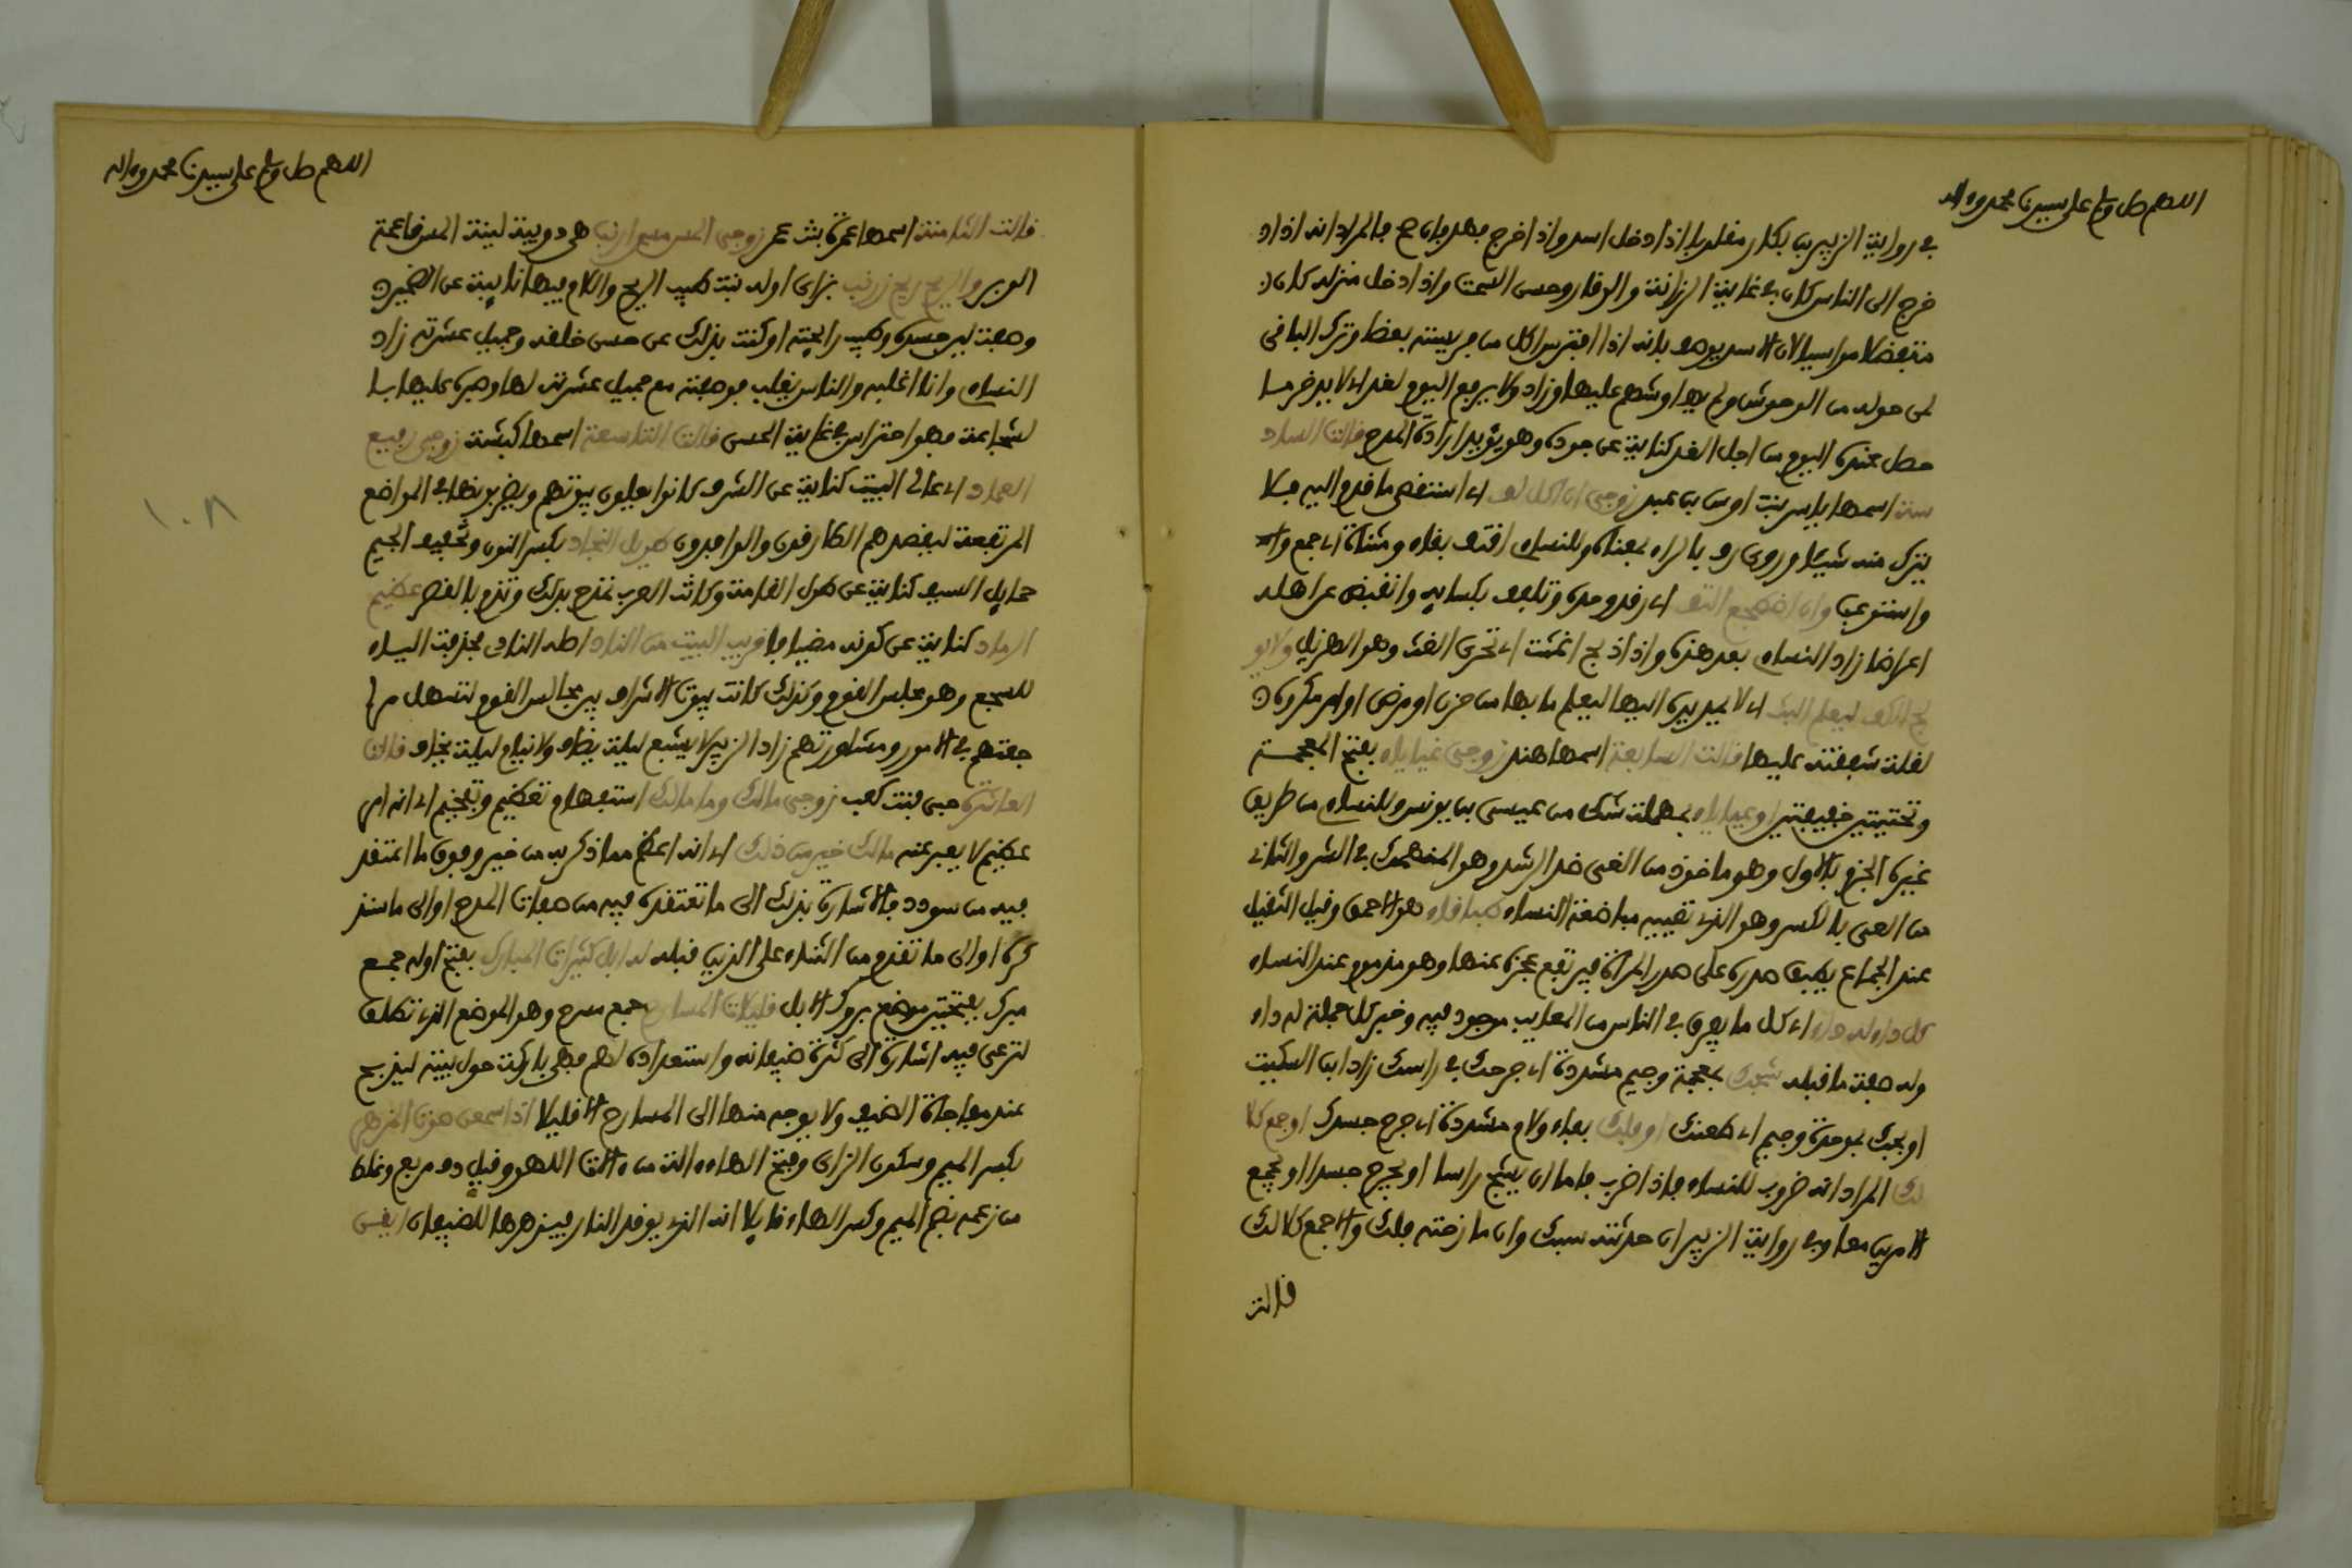 اللهم صل وسلم على سيدنا محمد وءاله
في رواية الزبير بن بكار مقلوبا إذا دخل أسد وإذا خرج فهد فإن صح فالمراد أنه إذا
خرج إلى الناس كان في غاية الرزانة والوقار وحسن السمت وإذا دخل منزله كان
متفضلا مواسيا لأن الأسد يوصف بأنه إذا افترس أكل من فريسته بعضا وترك الباقي
لمن حوله من الوحوش ولم عليها وزاد ولا يرفع اليوم لغد أي لا يدخر ما
حصل عنده اليوم من أجل الغد كناية عن جوده وهو يؤيد إرادة المدح قالت الساد
سة اسمها بنت أوس بن عبد زوجي إن أكل لف أي استقصى ما قدم إليه فلا
يترك منه شيئا وروي رف بالراء بمعناه وللنساء اقتف بقاف ومثناة أي جمع وا
واستوعب وإن اضطجع التف أي رقد وحده وتلفف بكسائه وانقبض عن أهله
إعراضا زاد النساء بعد هذه وإذا ذبح اغتث أي تحرى الغث وهو الهزيل ولا يو
لج الكف ليعلم البث أي لا يمد يده إليها ليعلم ما بها من حزن أو مرض أو أمر مكروه
لقلة شفقته عليها قالت السابعة اسمها هند زوجي غياياء بفتح المعجمة
وتحتيتين خفيفتين أو عياياء بمهملة شك من عيسى بن يونس وللنساء من طريق
غيره الجزم بالأول وهو ماخوذ من الغي ضد الرشد وهو المنهمك في الشر والثاني
من العي بالكسر وهو الذي تعييه مباضعة النساء طباقاء هو الأحمق وقيل الثقيل
عند الجماع يطبق صدره على صدر المرأة فيرتفع عجزه عنها وهو مذموم عند النساء
كل داء له داء أي كل ما يعرف في الناس من المعايب موجود فيه وخبر كل جملة له داء
وله صفة ما قبله شجك بمعجمة وجيم مشددة أي جرحك في راسك زاد ابن السكيت
أو بجك بموحدة وجيم أي طعنك أو فلك بفاء ولام مشددة أي جرح جسدك أو جمع كلا
لك المراد أنه ضروب للنساء فإذا ضرب فإما أن يشج راسا أو يجرح جسدا أو يجمع
الأمرين معا وفي رواية الزبير إن حدثته سبك وإن مازحته فلك وإلا جمع كلا لك
قالت
اللهم صل وسلم على سيدنا محمد وءاله
قالت الثامنة اسمها عمرة بنت عمر زوجي المس مس أرنب هي دويبة لينة المس ناعمة
الوبر والريح ريح زرنب بزاي أوله نبت طيب الريح واللام فيهما نائبة عن الضمير
وصفت لين جسده وطيب رائحته أو كنت بذلك عن حسن خلقه وجميل عشرته زاد
النساء وأنا أغلبه والناس يغلب فوصفته مع جميل عشرته لها وصبره عليها با
لشجاعة فهو احتراس في غاية الحسن قالت التاسعة اسمها كبشة زوجي رفيع
العماد أي عالي البيت كناية عن الشرف كانوا يعلون بيوتهم ويضربونها في المواضع
المرتفعة ليقصدهم الطارقون والوافدون طويل النجاد بكسر النون وتخفيف الجيم
حمايل السيف كناية عن طول القامة وكانت العرب تمدح بذلك وتذم بالقصر عظيم
الرماد كناية عن كونه مضيافا قريب البيت من الناد اصله النادي فحذفت الياء
للسجع وهو مجلس القوم وكذلك كانت بيوت الأشراف بين مجالس القوم لتسهل مرا
جعتهم في الأمور ومشاورتهم زاد الزبير لا يشبع ليلة يضاف ولا ينام ليلة يخاف قالت
العاشرة حبى بنت كعب زوجي مالك وما مالك استفهام وتعظيم وتفخيم أي أنه أمر
عظيم لا يعبر عنه مالك خير من ذلك أي أنه أعظم مما ذكر به من خير وفوق ما اعتقد
فيه من سودد فالإشارة بذلك إلى ما تعتقده فيه من صفات المدح أو إلى ما ستذ
كره أو إلى ما تقدم من الثناء على الذين قبله له ابل كثيرات المبارك بفتح أوله جمع
مبرك بفتحتين موضع بروك الإبل قليلات المسارح جمع مسرح وهو الموضع الذي تطلق
لترعى فيه إشارة إلى كثرة ضيفانه واستعداده لهم فهي باركة حول بيته ليذبح
عند مفاجاة الضيف ولا يوجه منها إلى المسارح إلا قليلا إذا سمعن صوت المزهر
بكسر الميم وسكون الزاي وفتح الهاء ءالة من ءالات اللهو وقيل دف مربع وغلط
من زعمه بضم الميم وكسر الهاء قائلا أنه الذي يوقد النار فيزهرها للضيفان أيقن
١٠٨